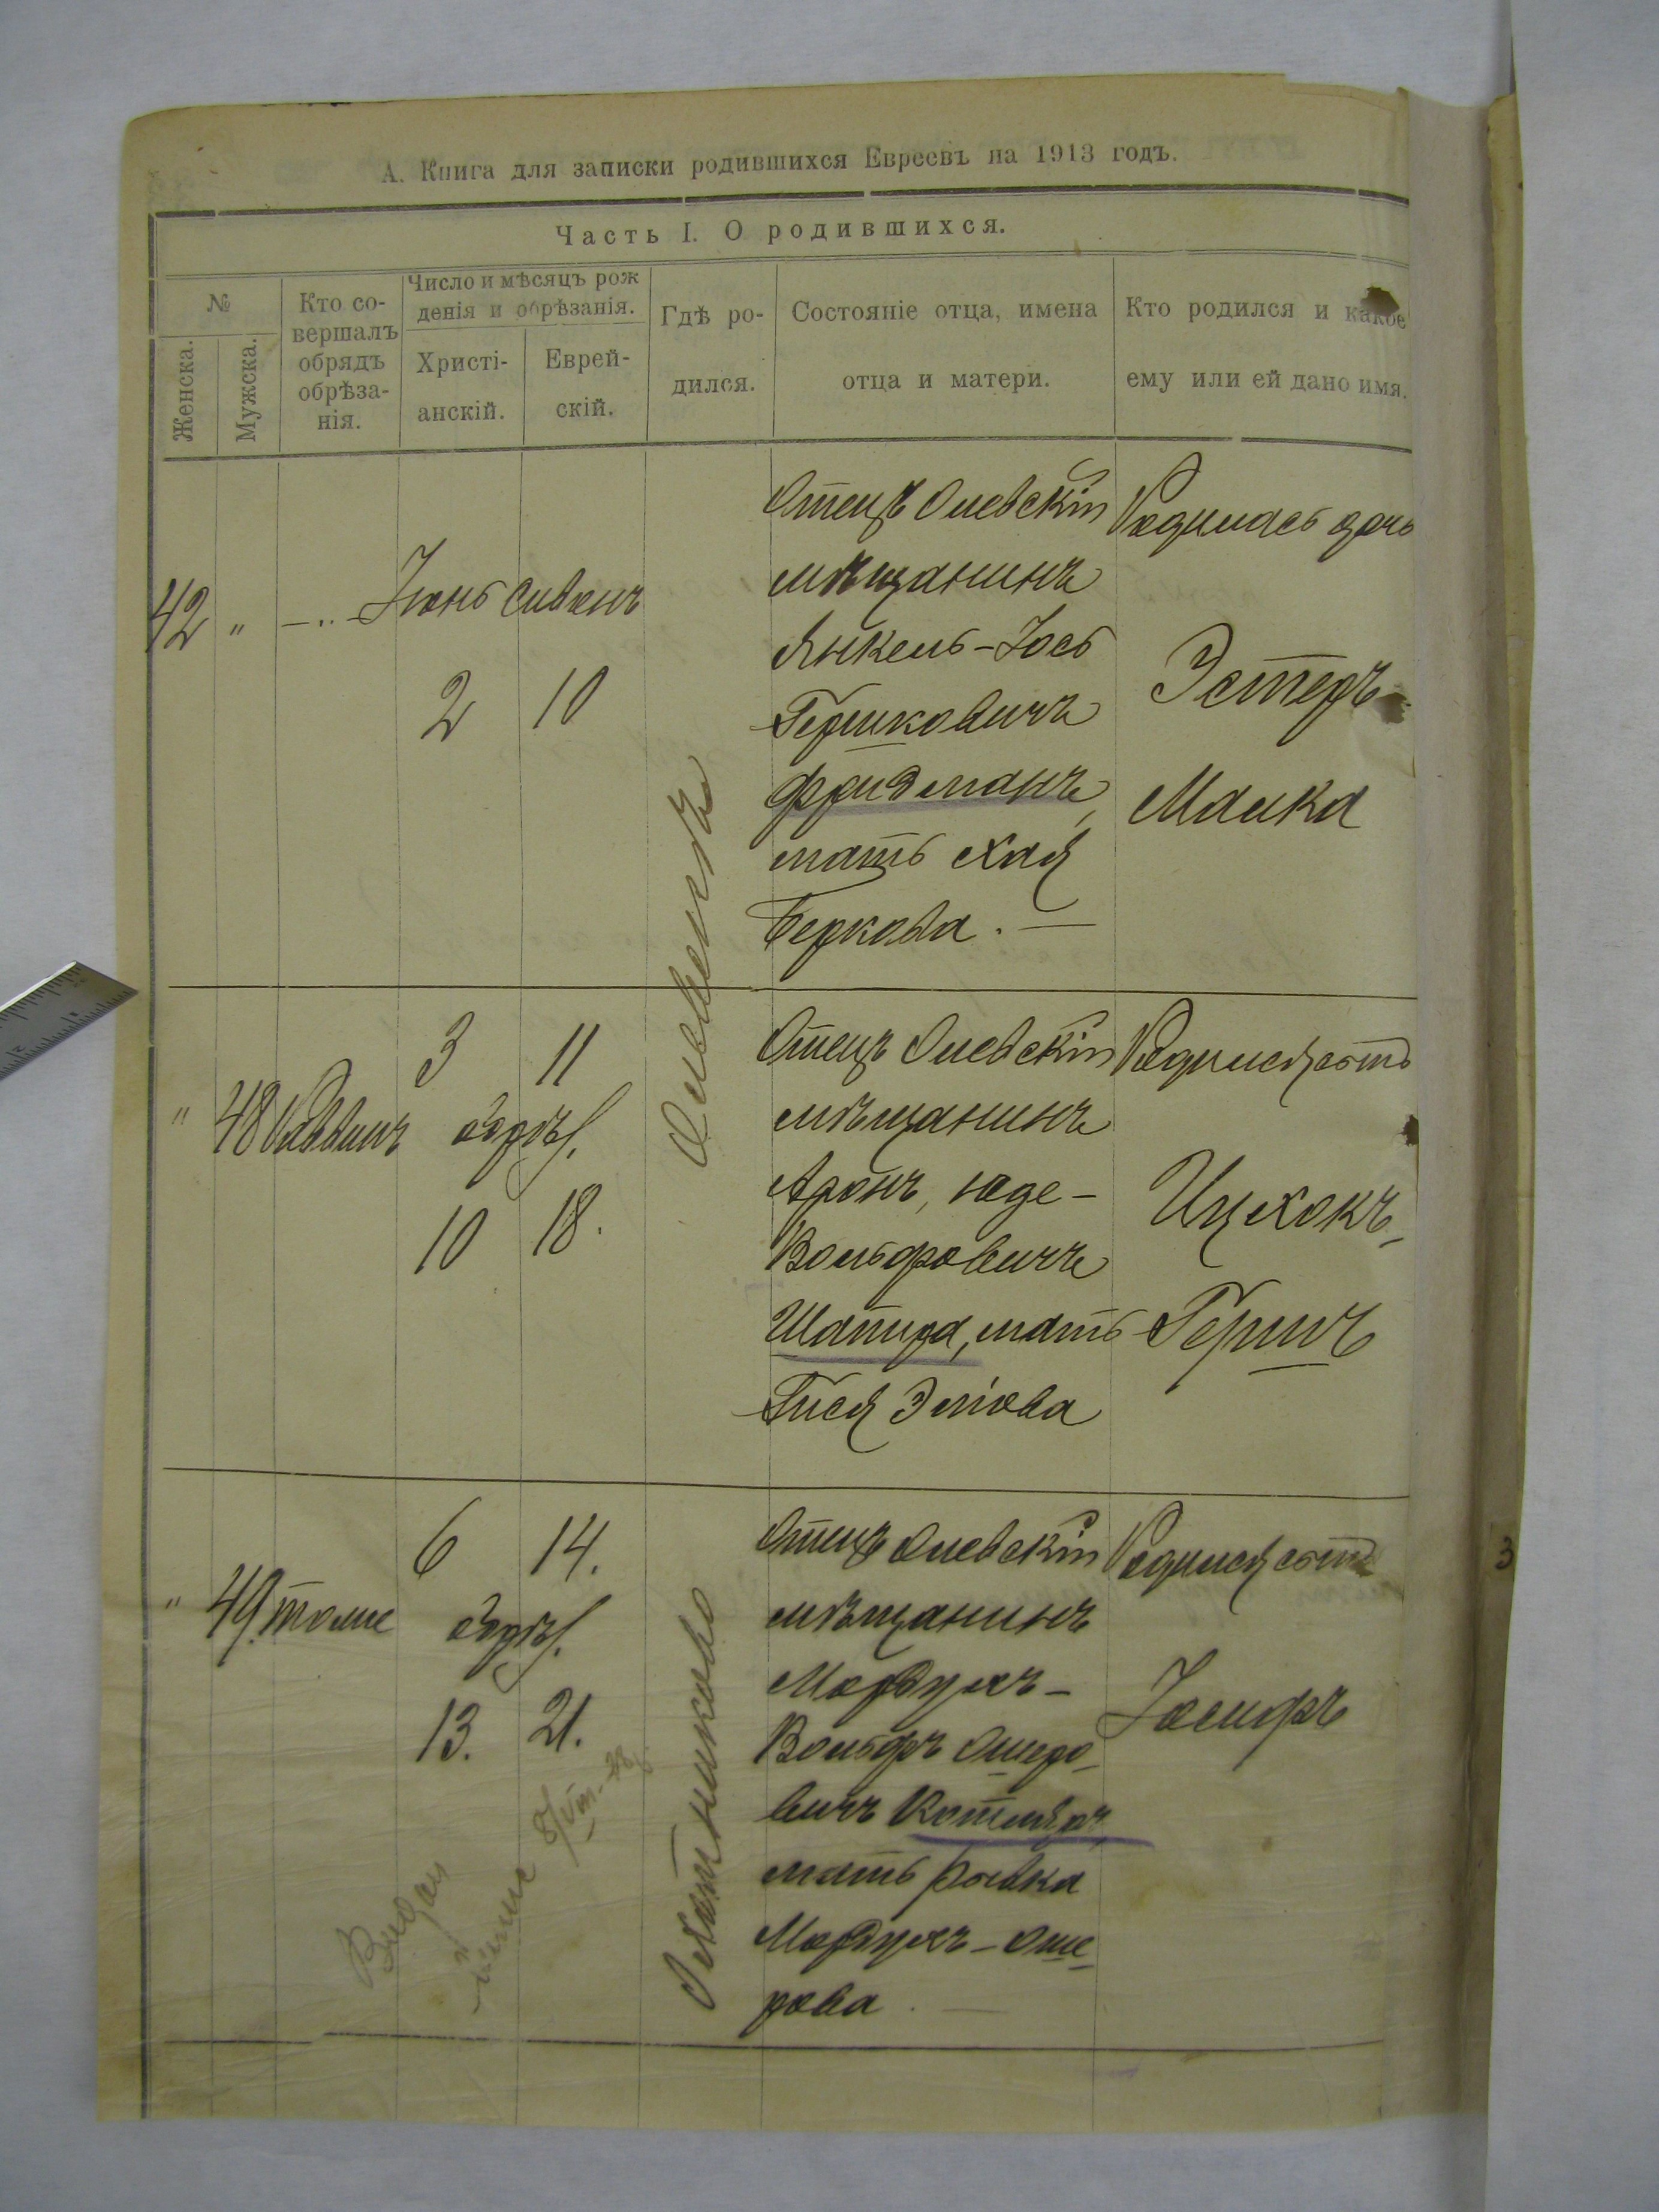 А. Книга для записки родившихся Евреевъ на 1913 годъ.
Часть I. О родившихся.
№
Женска.
Мужска.
Кто со-
вершалъ
обрядъ
обрѣза-
нія.
Число и мѣсяцъ рож
денія и обрѣзанія.
Христі-
анскій.
Еврей-
скій.
Гдѣ ро-
дился.
Состояніе отца, имена
отца и матери.
Кто родился и какое
ему или ей дано имя.
42 " —..— Іюнь Сивонъ
2 10
Олевскѣ
Отецъ Олевскій
мѣщанинъ
Янкель-Іось
Гершковичъ
Фридманъ,
мать Хая
Беркова. —
Родилась дочь
Эстеръ-
Малка
" 48 Раввинъ
3 11
обрѣз.
10 18.
Отецъ Олевскій
мѣщанинъ
Аронъ, Юде-
Вольфовичъ
Шапира, мать
Гися Эліова
Родился сынъ
Ицхокъ-
Гершъ
" 49. тоже
6 14.
обрѣз.
13. 21.
Отецъ Олевскій
мѣщанинъ
Мордухъ-
Вольфъ Ошеро-
вичъ Котляръ,
мать Рывка
Мордухъ-Оше-
рова. —
Родился сынъ
Іосифъ
3